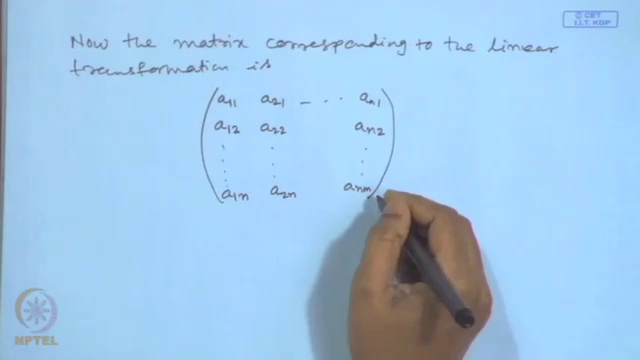 © CET
I.I.T. KGP
Now the matrix corresponding to the linear
transformation is
a11 a21 - - ·· an1
a12 a22 an2
a1n a2n anm
NPTEL